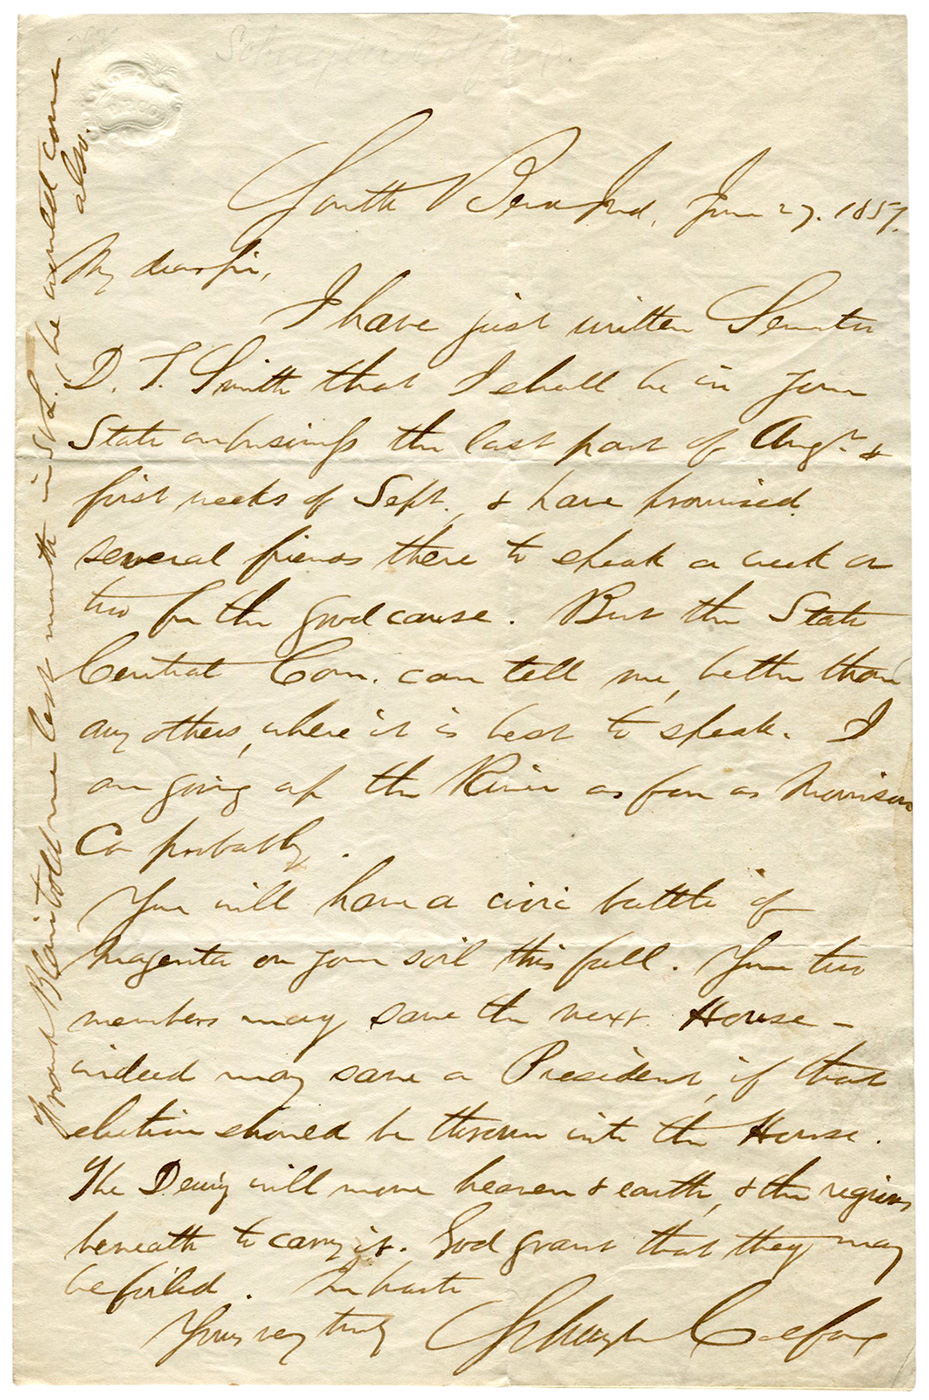 Schuyler Colfax
South Bend Ind, June 27. 1859.
My dear sir,
I have just written Senator
D. T. Smith that I shall be in your
State on business the last part of Augt. &
first weeks of Sept., & have promised
several friends there to speak a week or
two for the good cause. But the State
Central Com. can tell me, better than
any others, where it is best to speak. I
am going up the River as far as Morrison
Co probably.
You will have a civic battle of
Magenta on your soil this fall. Your two
members may save the next House –
indeed may save a President, if that
election should be thrown into the House.
The Demy will move heaven & earth, & the regions
beneath to carry it. God grant that they may
be foiled. In haste
Yours very truly Schuyler Colfax
Frank Blair told me last month in St L., he would come
also.